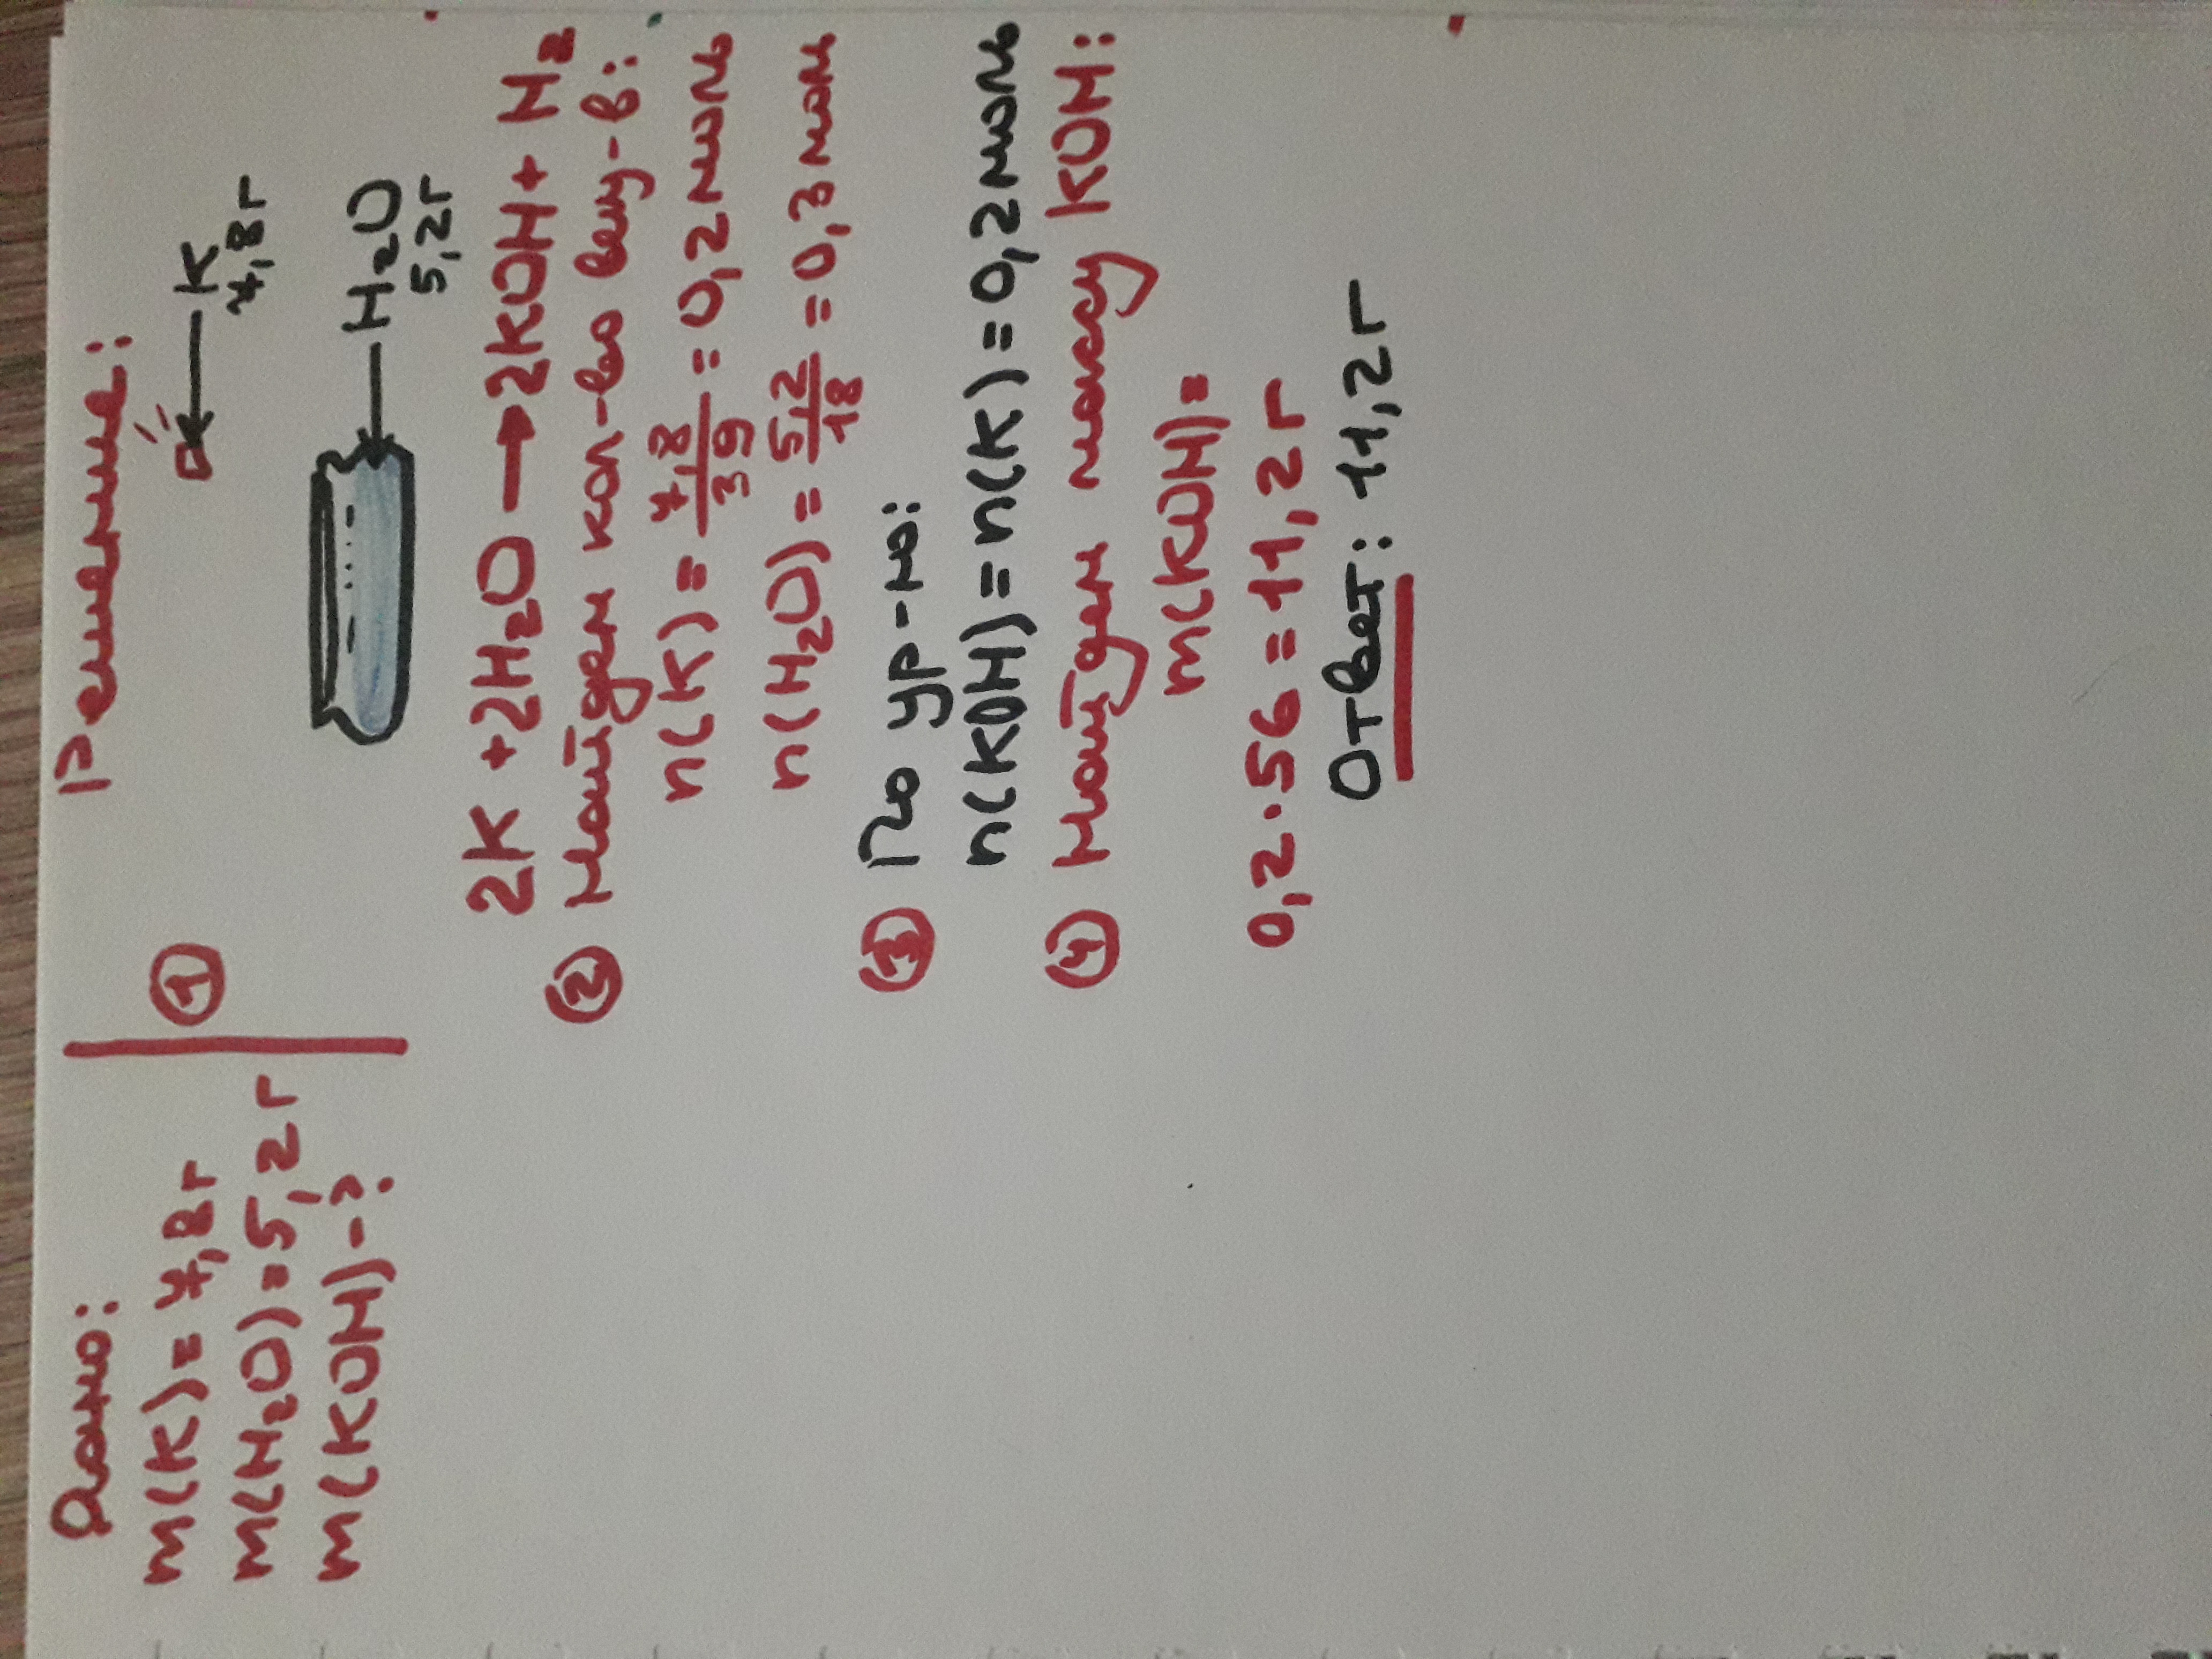 Дано:
m(K) = 7,8г
m(H₂O) = 5,2г
m(KOH) - ?
Решение:
①
K
7,8г
H₂O
5,2г
2K + 2H₂O → 2KOH + H₂
② Найдем кол-во вещ-в:
n(K) = 7,8/39 = 0,2 моль
n(H₂O) = 5,2/18 = 0,3 моль
③ По ур-ю:
n(KOH) = n(K) = 0,2 моль
④ Найдем массу KOH:
m(KOH) =
0,2 · 56 = 11,2г
Ответ: 11,2г